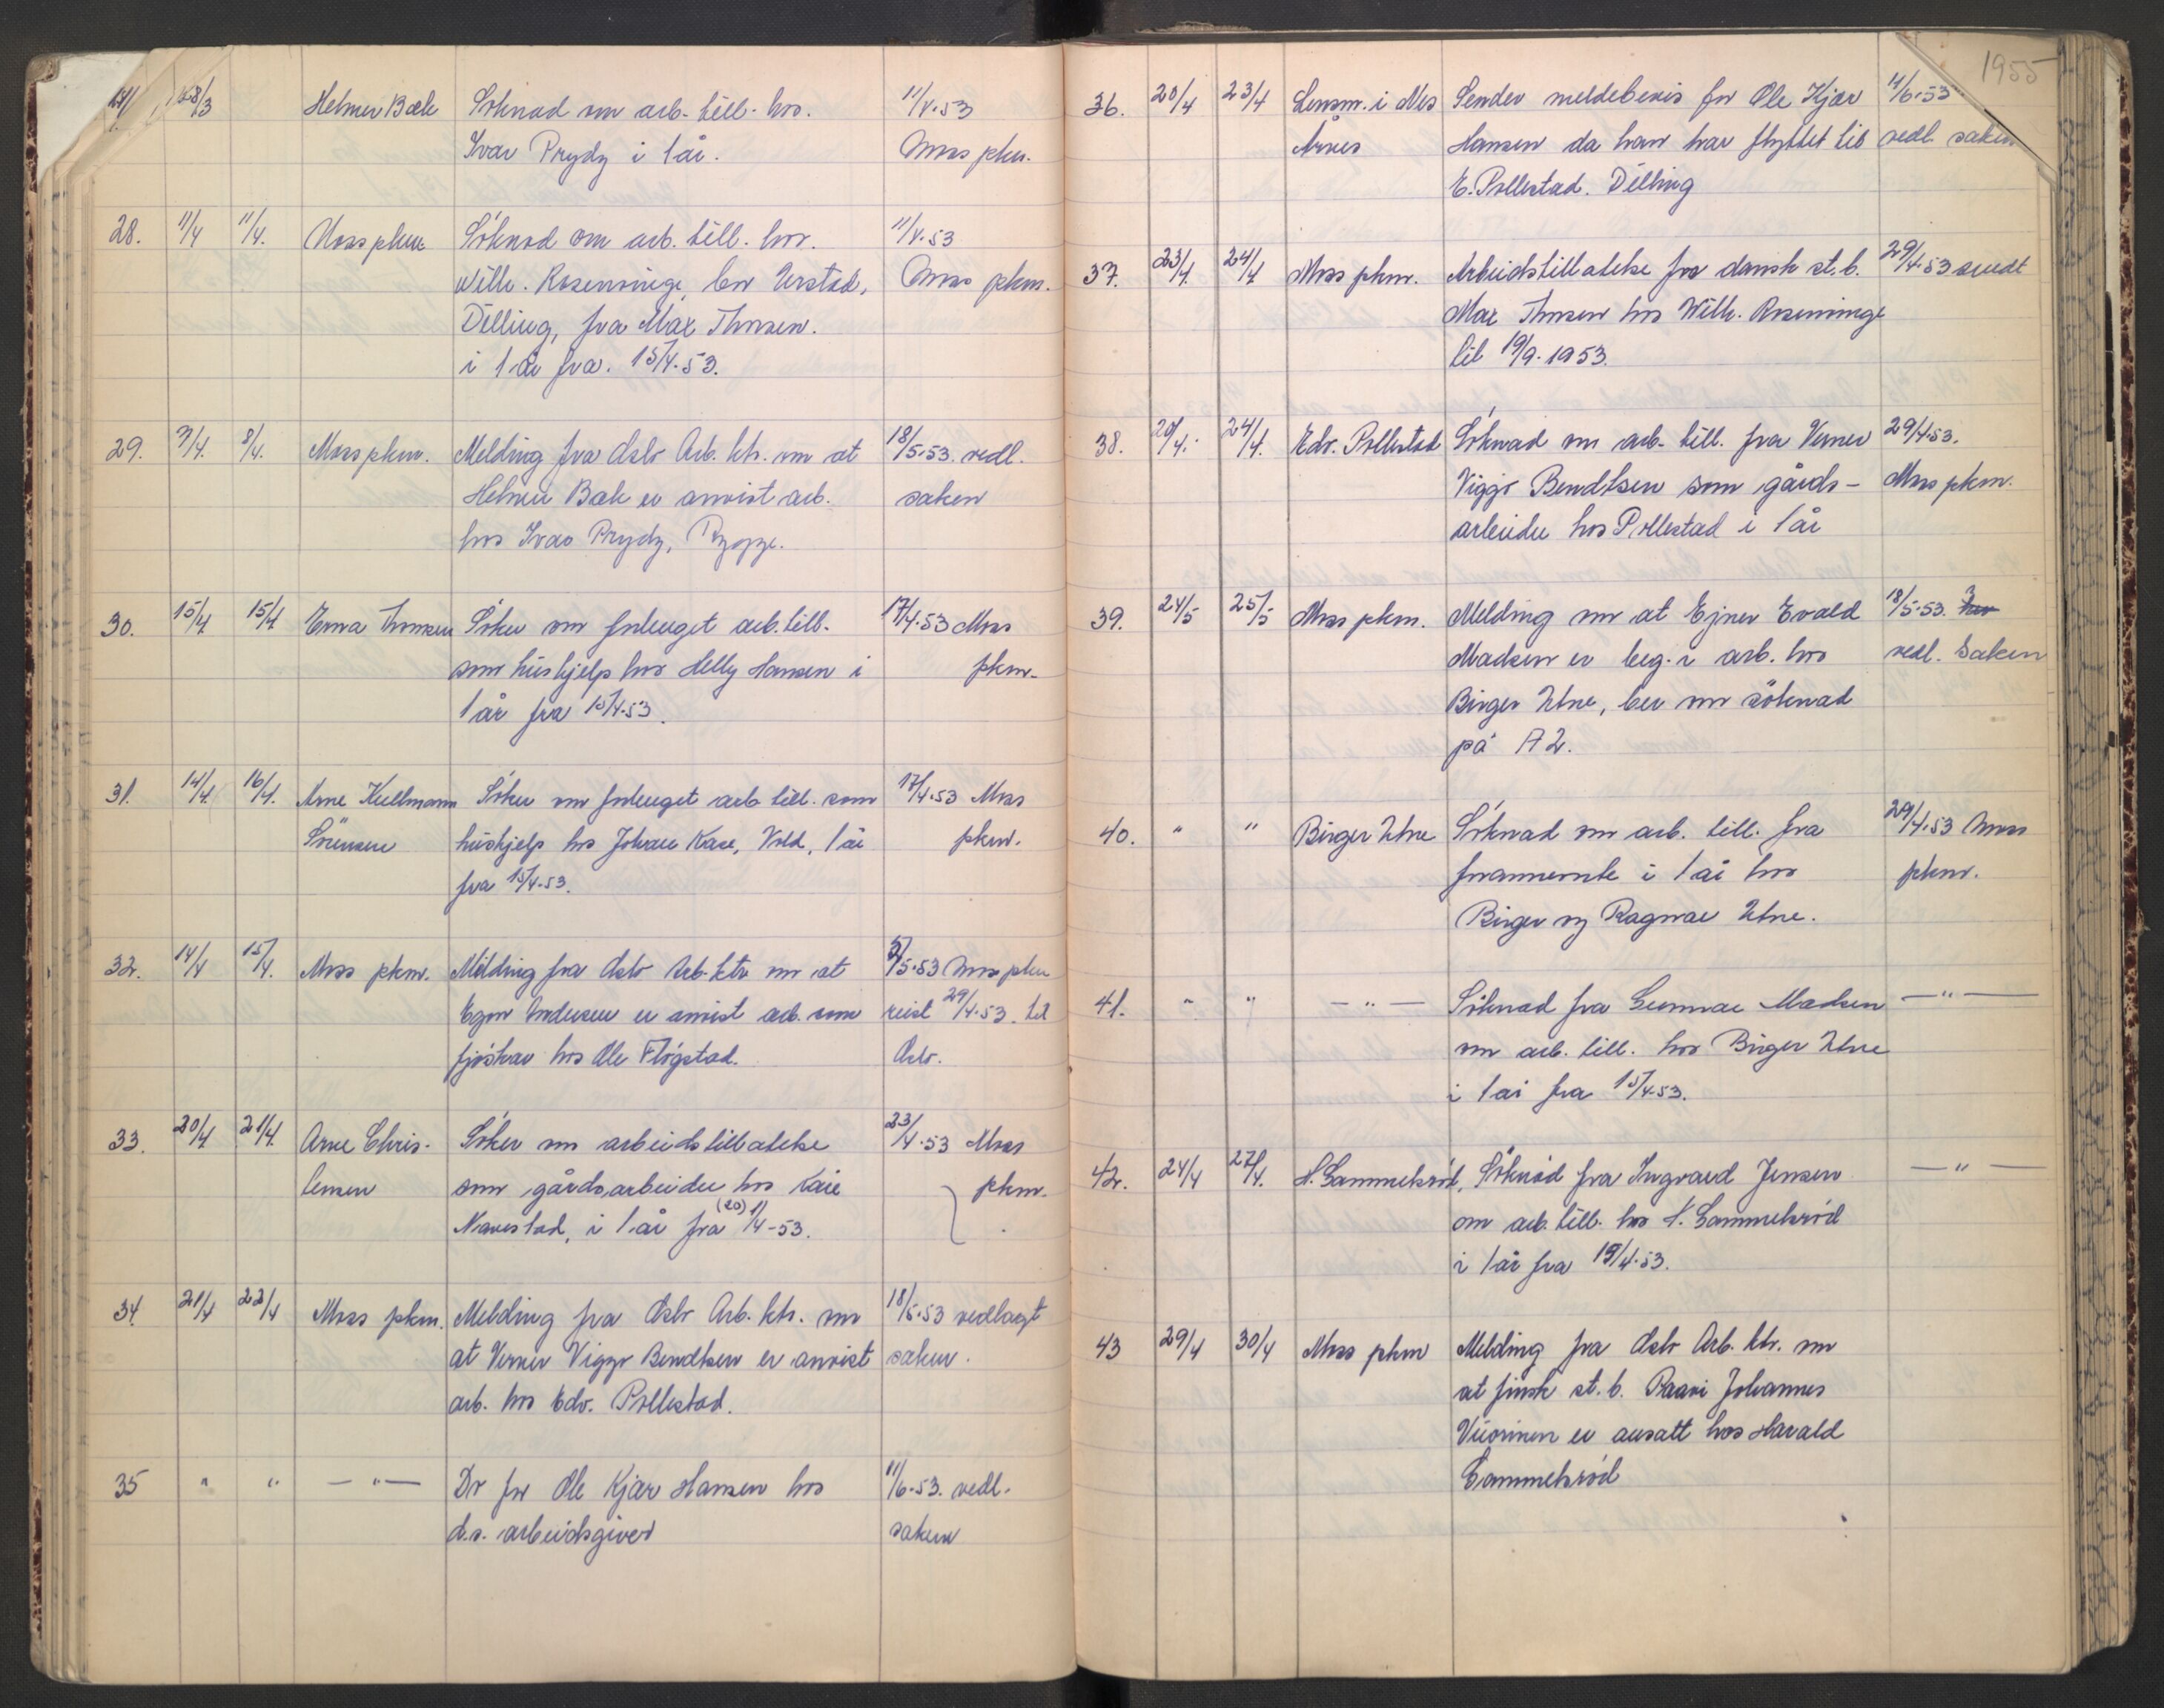 28/3 Helmer Bæk Söknad om arb. till. hos. 11/4.53
Ivar Prydz i 1 år. Moss pkm.
28. 11/4 11/4. Moss pkm Söknad om arb. till. hos. 11/4.53
Wilh. Rosenvinge, Moss pkm.
Dilling, fra Max Thorsen.
i 1 år fra. 15/4.53.
29. 7/4. 8/4. Moss pkm. Melding fra Oslo Arb. ktr. om at 18/5.53. vedl.
Helmer Bæk er anvist arb. saken
hos Ivar Prydz, Rygge.
30. 15/4 15/4 Erna Thomsen Söker om forlenget arb. till. 17/4.53 Moss
som hushjelp hos Helly Hansen i pkm.
1 år fra 15/4.53.
31. 14/4. 16/4. Arne Kullmann Söker om forlenget arb till. som 17/4.53 Moss
Sörensen hushjelp hos Johan Kase, Vold, 1 år pkm.
fra 15/4.53.
32. 14/4 15/4. Moss pkm. Melding fra Oslo Arb. ktr om at /5.53 Moss pkm
Egon Andersen er anvist arb. som reist 29/4.53. til
fjöskar hos Ole Flógstad. Oslo.
33. 20/4 21/4. Arne Chris- Söker om arbeidstillatelse 23/4.53 Moss
tensen som gårdsarbeider hos Kåre pkm.
Navestad, i 1 år fra (20) 1/4-53.
34. 21/4 22/4 Moss pkm. Melding fra Oslo Arb. ktr. om 18/5.53 vedlagt
at Verner Viggo Bendtsen er anvist saken.
arb. hos Edv. Pollestad.
35 " " — " — Do for Ole Kjær Hansen hos 11/6.53. vedl.
d.s. arbeidsgiver saken
1955
36. 20/4 23/4 Lensm. i Nes Sender meldebevis for Ole Kjær 11/6.53
Årnes Hansen da han har flyttet til vedl. saken
E. Pollestad. Dilling
37. 23/4. 24/4 Moss pkm. Arbeidstillatelse for dansk st. b. 29/4.53 sendt
Max Thorsen hos Wilh. Rosenvinge
til 19/9.1953.
38. 20/4. 24/4. Edv. Pollestad Söknad om arb. till. fra Verner 29/4.53.
Viggo Bendtsen som gårds- Moss pkm.
arbeider hos Pollestad i 1 år
39. 24/5 25/5 Moss pkm. Melding om at Ejner Evald 18/5.53.
Madsen er beg. i arb. hos vedl. saken
Birger Utne, ber om söknad
på A 2.
40. " " Birger Utne Söknad om arb. till. fra 29/4.53 Moss
forannevnte i 1 år hos pkm.
Birger og Ragnar Utne.
41. " " — " — Söknad fra Gunnar Madsen — " —
om arb. till. hos Birger Utne
i 1 år fra 15/4.53.
42. 24/4 27/4. H. Gammelsröd, Söknad fra Ingvard Jensen — " —
om arb. till. hos H. Gammelsröd
i 1 år fra 19/4.53.
43 29/4 30/4 Moss pkm Melding fra Oslo Arb. ktr. om
at finsk st. b. Paavi Johannes
Vuorinen er ansatt hos Harald
Gammelsröd